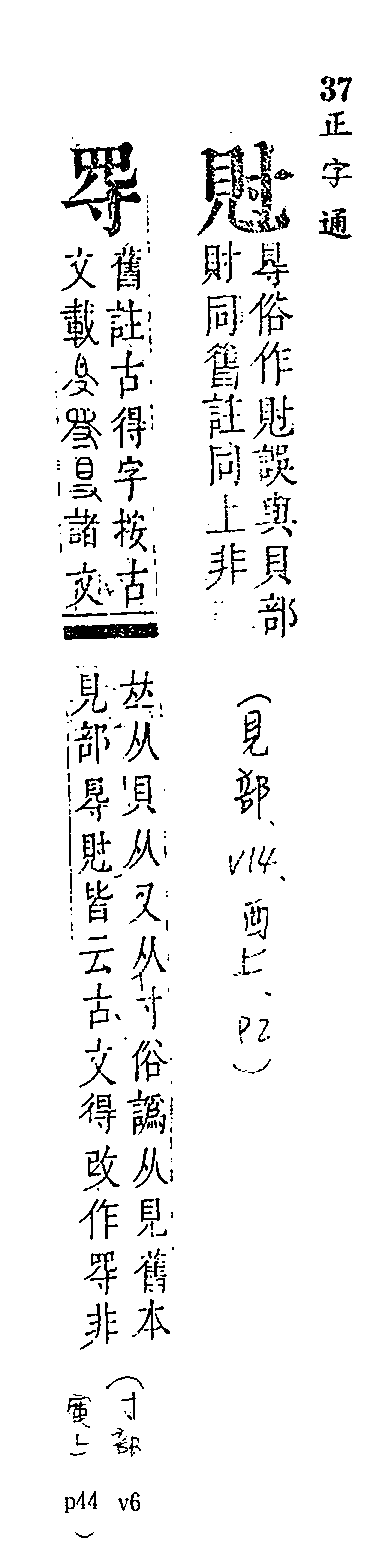 37 正字通
䙷俗作䙸誤與貝部
財同舊註同上非
(見部、v14、酉上、p2)
舊註古得字按古
文載諸文
𠀤从貝从又从寸俗譌从見舊本
見部䙷皆云古文得改作㝵非
(寸部 v6
寅上 p44)